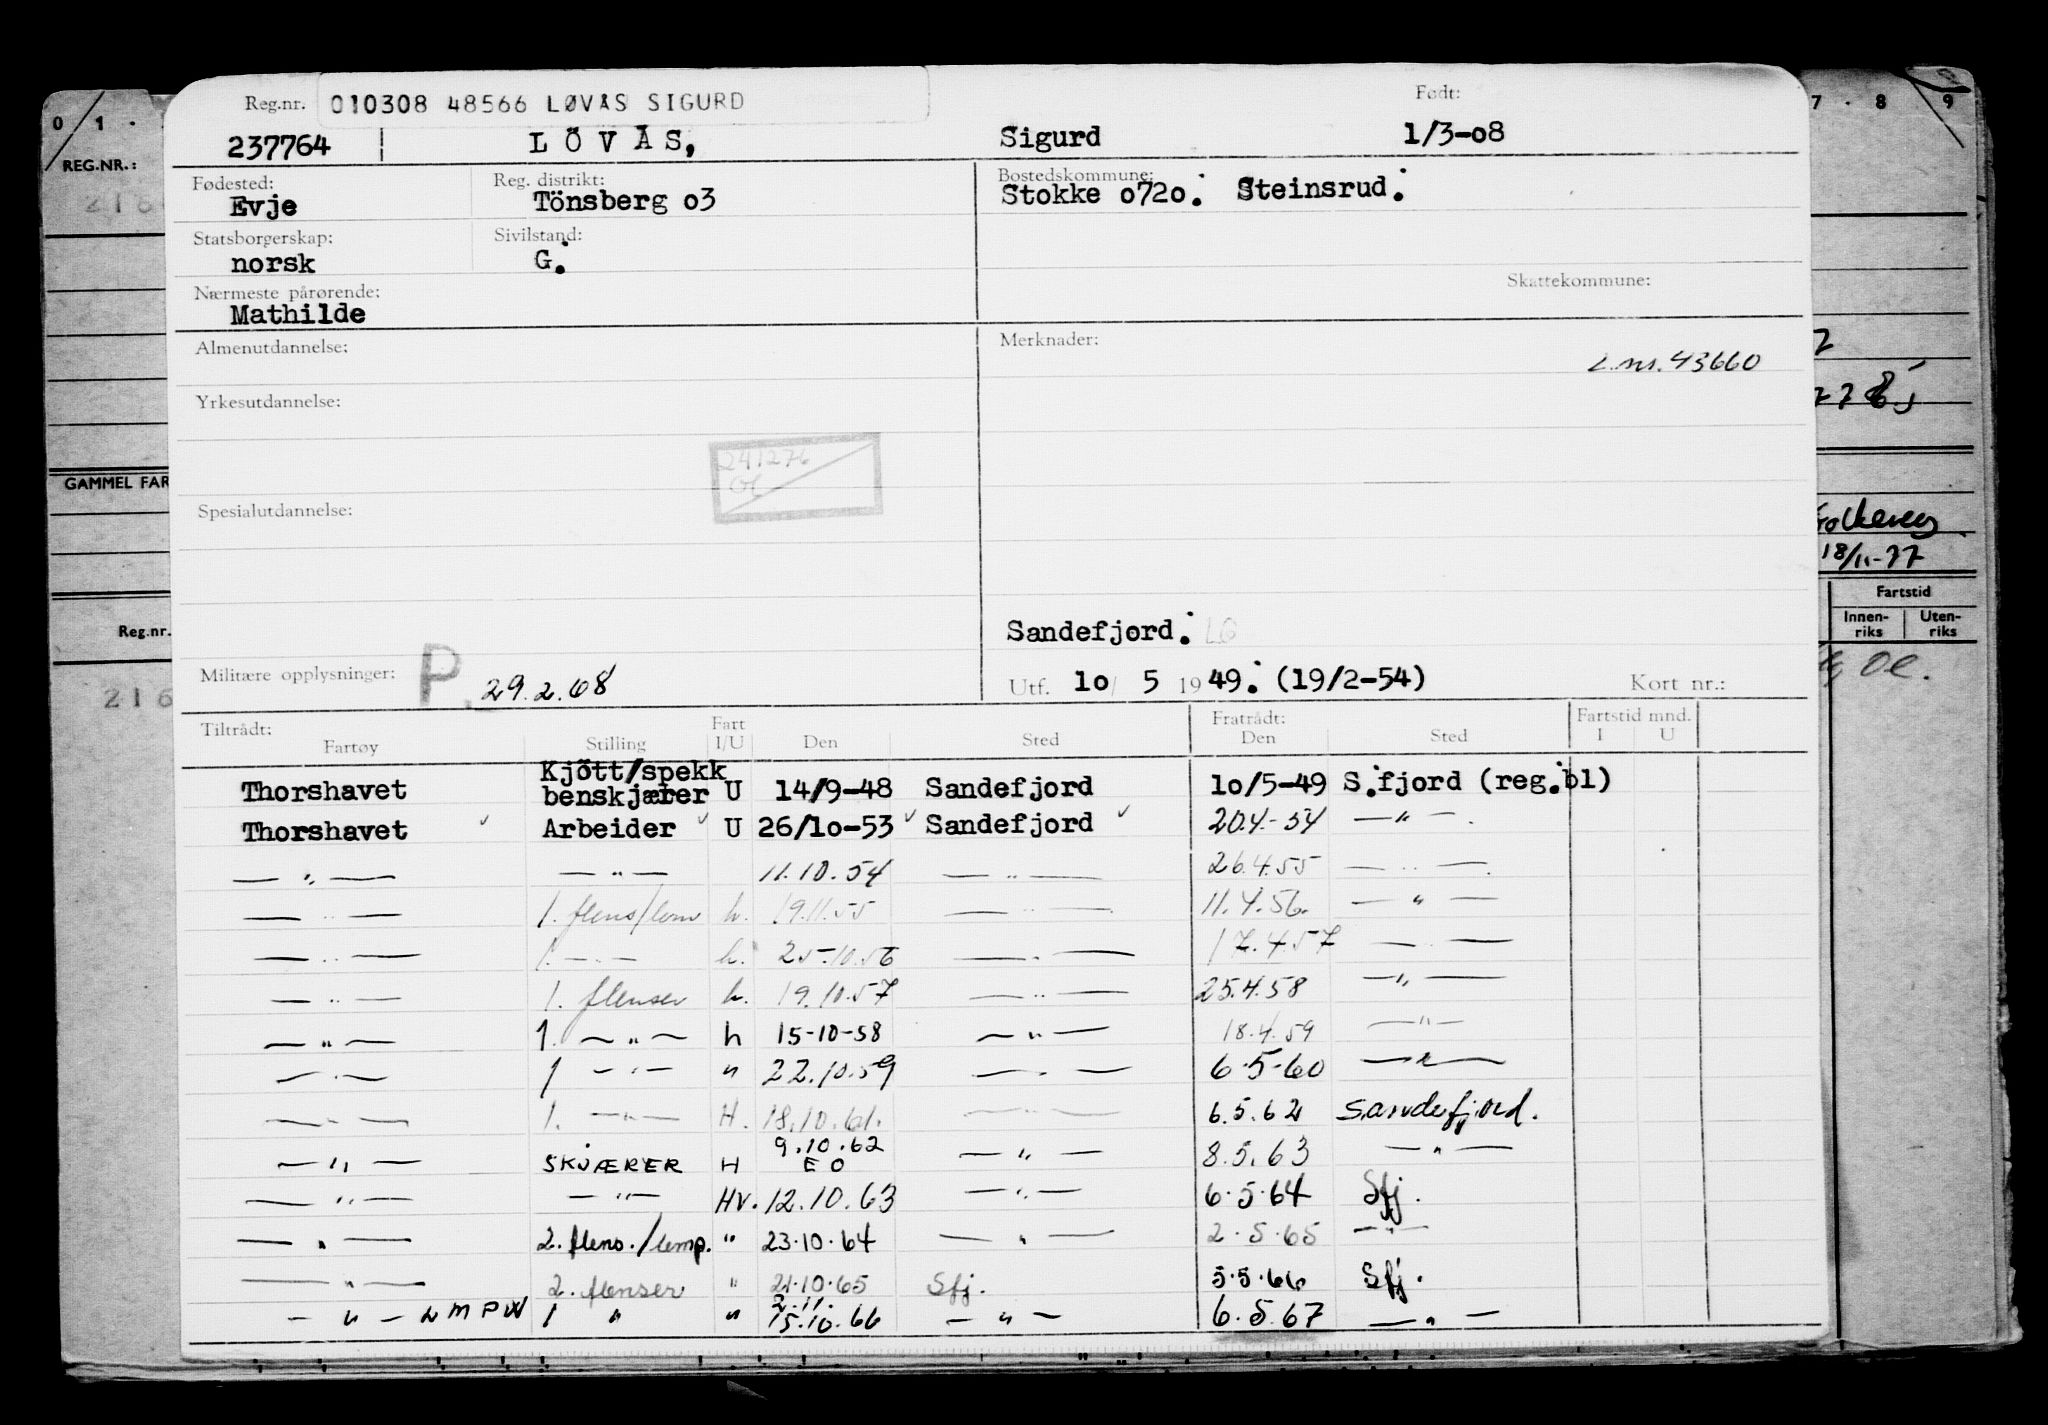 Reg.nr. 010308 48566 LØVÅS SIGURD Født:
237764 LÖVÅS, Sigurd 1/3-08
Fødested: Reg. distrikt: Bostedskommune:
Evje Tönsberg o3 Stokke o72o. Steinsrud.
Statsborgerskap: Sivilstand:
norsk G.
Nærmeste pårørende: Skattekommune:
Mathilde
Almenutdannelse: Merknader:
L.nr. 43660
Yrkesutdannelse:
241276
OC
Spesialutdannelse:
Sandefjord. LG
Militære opplysninger: P. 29.2.68 Utf. 1o/ 5 1949. (19/2-54) Kort nr.:
Tiltrådt: Fart Fratrådt: Fartstid mnd.
Fartøy Stilling I/U Den Sted Den Sted I U
Thorshavet Kjött/spekk benskjærer U 14/9-48 Sandefjord 1o/5-49 S.fjord (reg.bl)
Thorshavet ✓ Arbeider ✓ U 26/1o-53 ✓ Sandefjord ✓ 20.4.-54 — " —.
— " — — " — 11.10.54 — " — 26.4.55 — " —
— " — 1. flens/lem h. 19.11.55 — " — 11.4.56. — " —
— " — 1. — " — h. 25.10.56 — " — 17.4.57 — " —
— " — 1. flenser h. 19.10.57 — " — 25.4.58 — " —
— " — 1. — " — h 15-10-58 — " — 18.4.59 — " —
— " — 1 — " — " 22.10.59 — " — 6-5-60 — " —
— " — 1. — " — H. 18.10.61. — " — 6.5.62 Sandefjord.
— " — SKJÆRER H 9.10.62 EO — " — 8.5.63 — " —
— " — — " — HV. 12.10.63 — " — 6.5.64 Sfj.
— " — 2. flens./lemp. " 23.10.64 — " — 2.5.65 — " —
— " — 2. flenser " 21.10.65 Sfj. 5.5.66 Sfj.
— " — LMPW 1 " " 2.11. 15.10.66 — " — 6.5.67 — " —
0 1 . 7 . 8 9
REG.NR.:
GAMMEL FAR
Reg.nr.
216
18/11-77
Fartstid
Innen-riks Uten-riks
OC.